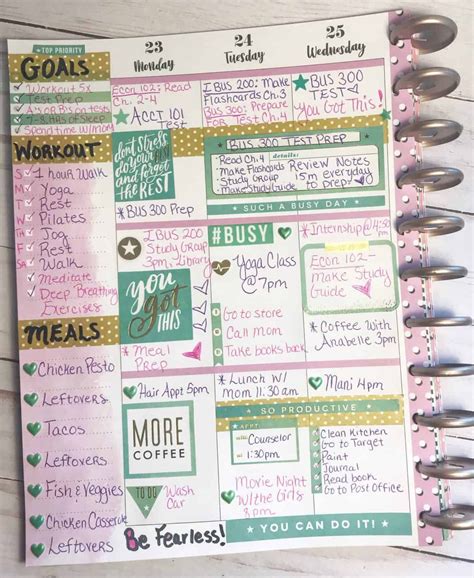 TOP PRIORITY
GOALS
Workout 5x
Test Prep
A's or B's on tests
7-8 hrs of Sleep
Spend time w/mom
WORKOUT
S 1 hour Walk
M Yoga
T Rest
W Pilates
T Jog
F Rest
S Walk
Meditate
Deep Breathing
Exercises
MEALS
Chicken Pesto
Leftovers
Tacos
Leftovers
Fish & Veggies
Chicken Casserole
Leftovers
23
Monday
Econ 102: Read
Ch. 2-4
ACCT 101
TEST
dont stress
do your best
and forget
the REST
*BUS 300 Prep
BUS 200
Study Group
3pm, Library
you
GOT
THIS
*Meal
Prep
Hair Appt 5pm
MORE
COFFEE
TO DO
Wash
Car
Be Fearless!
24
Tuesday
BUS 200: Make
Flashcards Ch. 3
BUS 300: Prepare
For TEST
BUS 300 TEST PREP
Read Ch. 4
details:
Make Flashcards
Study Group
Make Study Guide
Review Notes
15m everyday
to prep
SUCH A BUSY DAY
#BUSY
Yoga Class
@7pm
Go to store
Call Mom
Take books back
*Lunch w/
Mom 11:30 am
SO PRODUCTIVE
APPT
with: Counselor
at: 1:30pm
Movie Night
w/the Girls
8pm
25
Wednesday
BUS 300
TEST
You Got This!
*Internship@4:30
pm
Econ 102-
Make Study
Guide
*Coffee With
Anabelle 3pm
Mani 4pm
Clean Kitchen
Go to Target
Paint
Journal
Read book
Go to Post Office
YOU CAN DO IT!